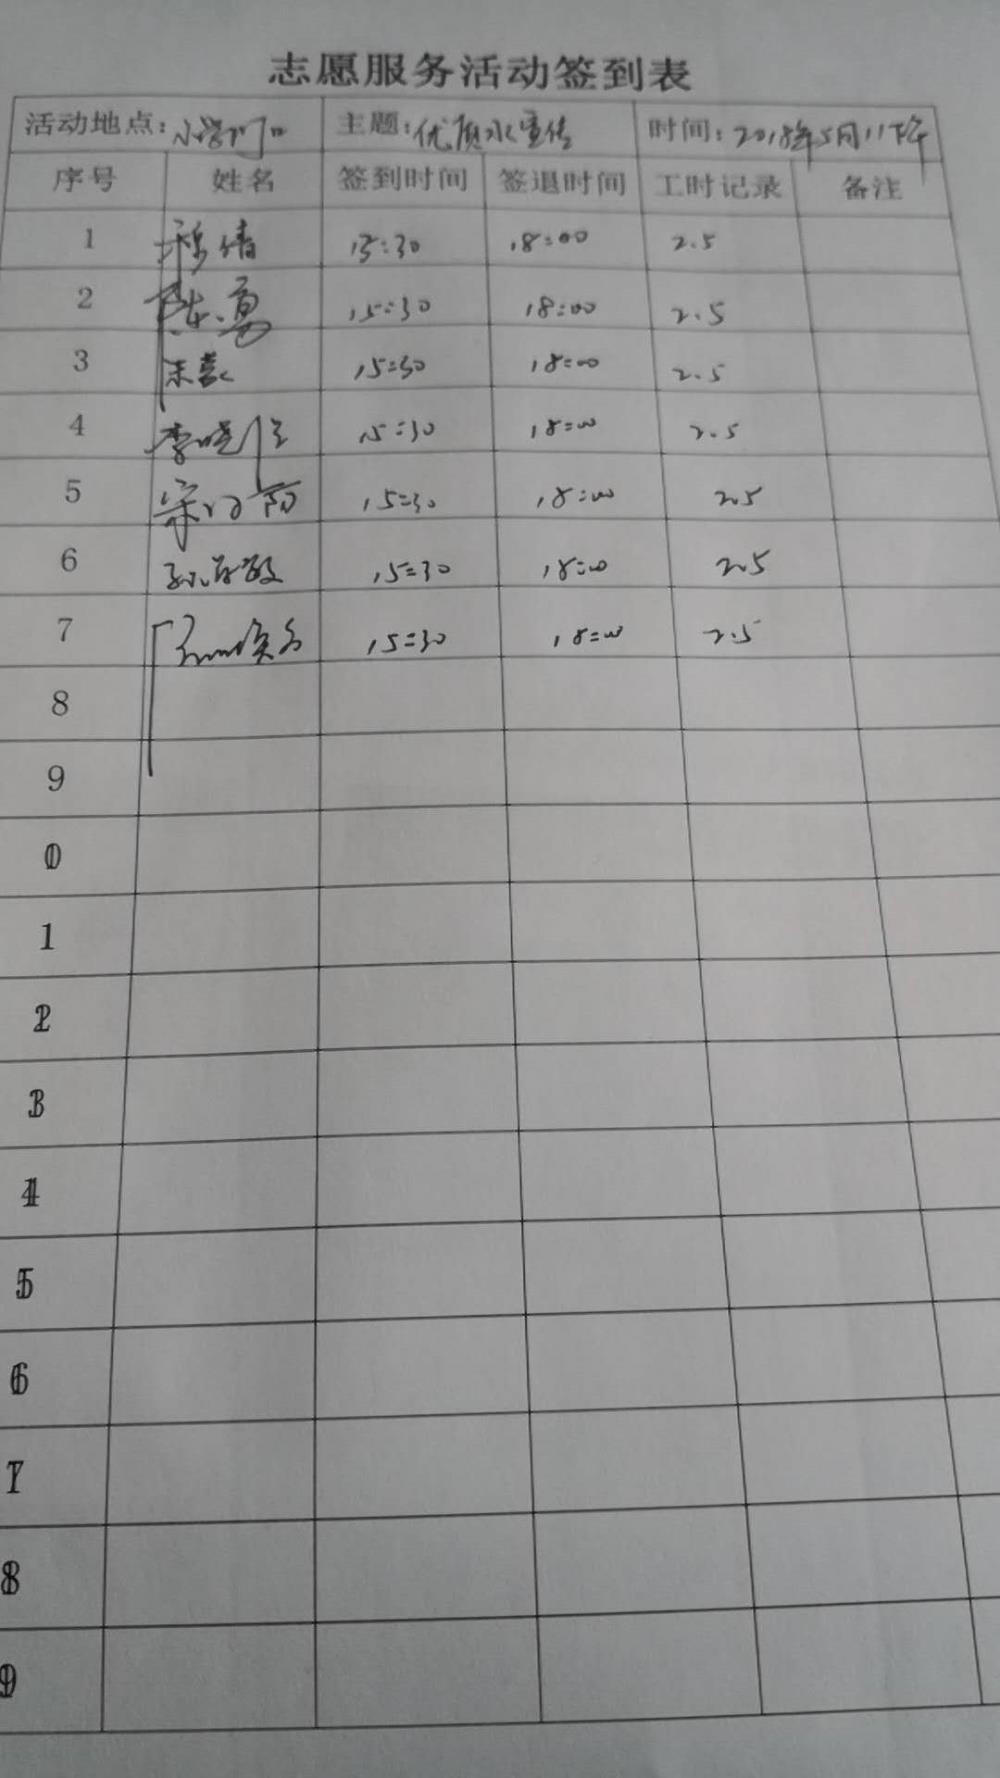 志愿服务活动签到表
活动地点：小学门口 主题：优质水宣传 时间：2018年5月11下午
序号 姓名 签到时间 签退时间 工时记录 备注
1 穆倩 15:30 18:00 2.5
2 陈勇 15:30 18:00 2.5
3 15:30 18:00 2.5
4 李晓 15:30 18:00 2.5
5 宋 阳 15:30 18:00 2.5
6 15:30 18:00 2.5
7 15:30 18:00 2.5
8
9
10
1
12
13
14
15
16
17
18
19